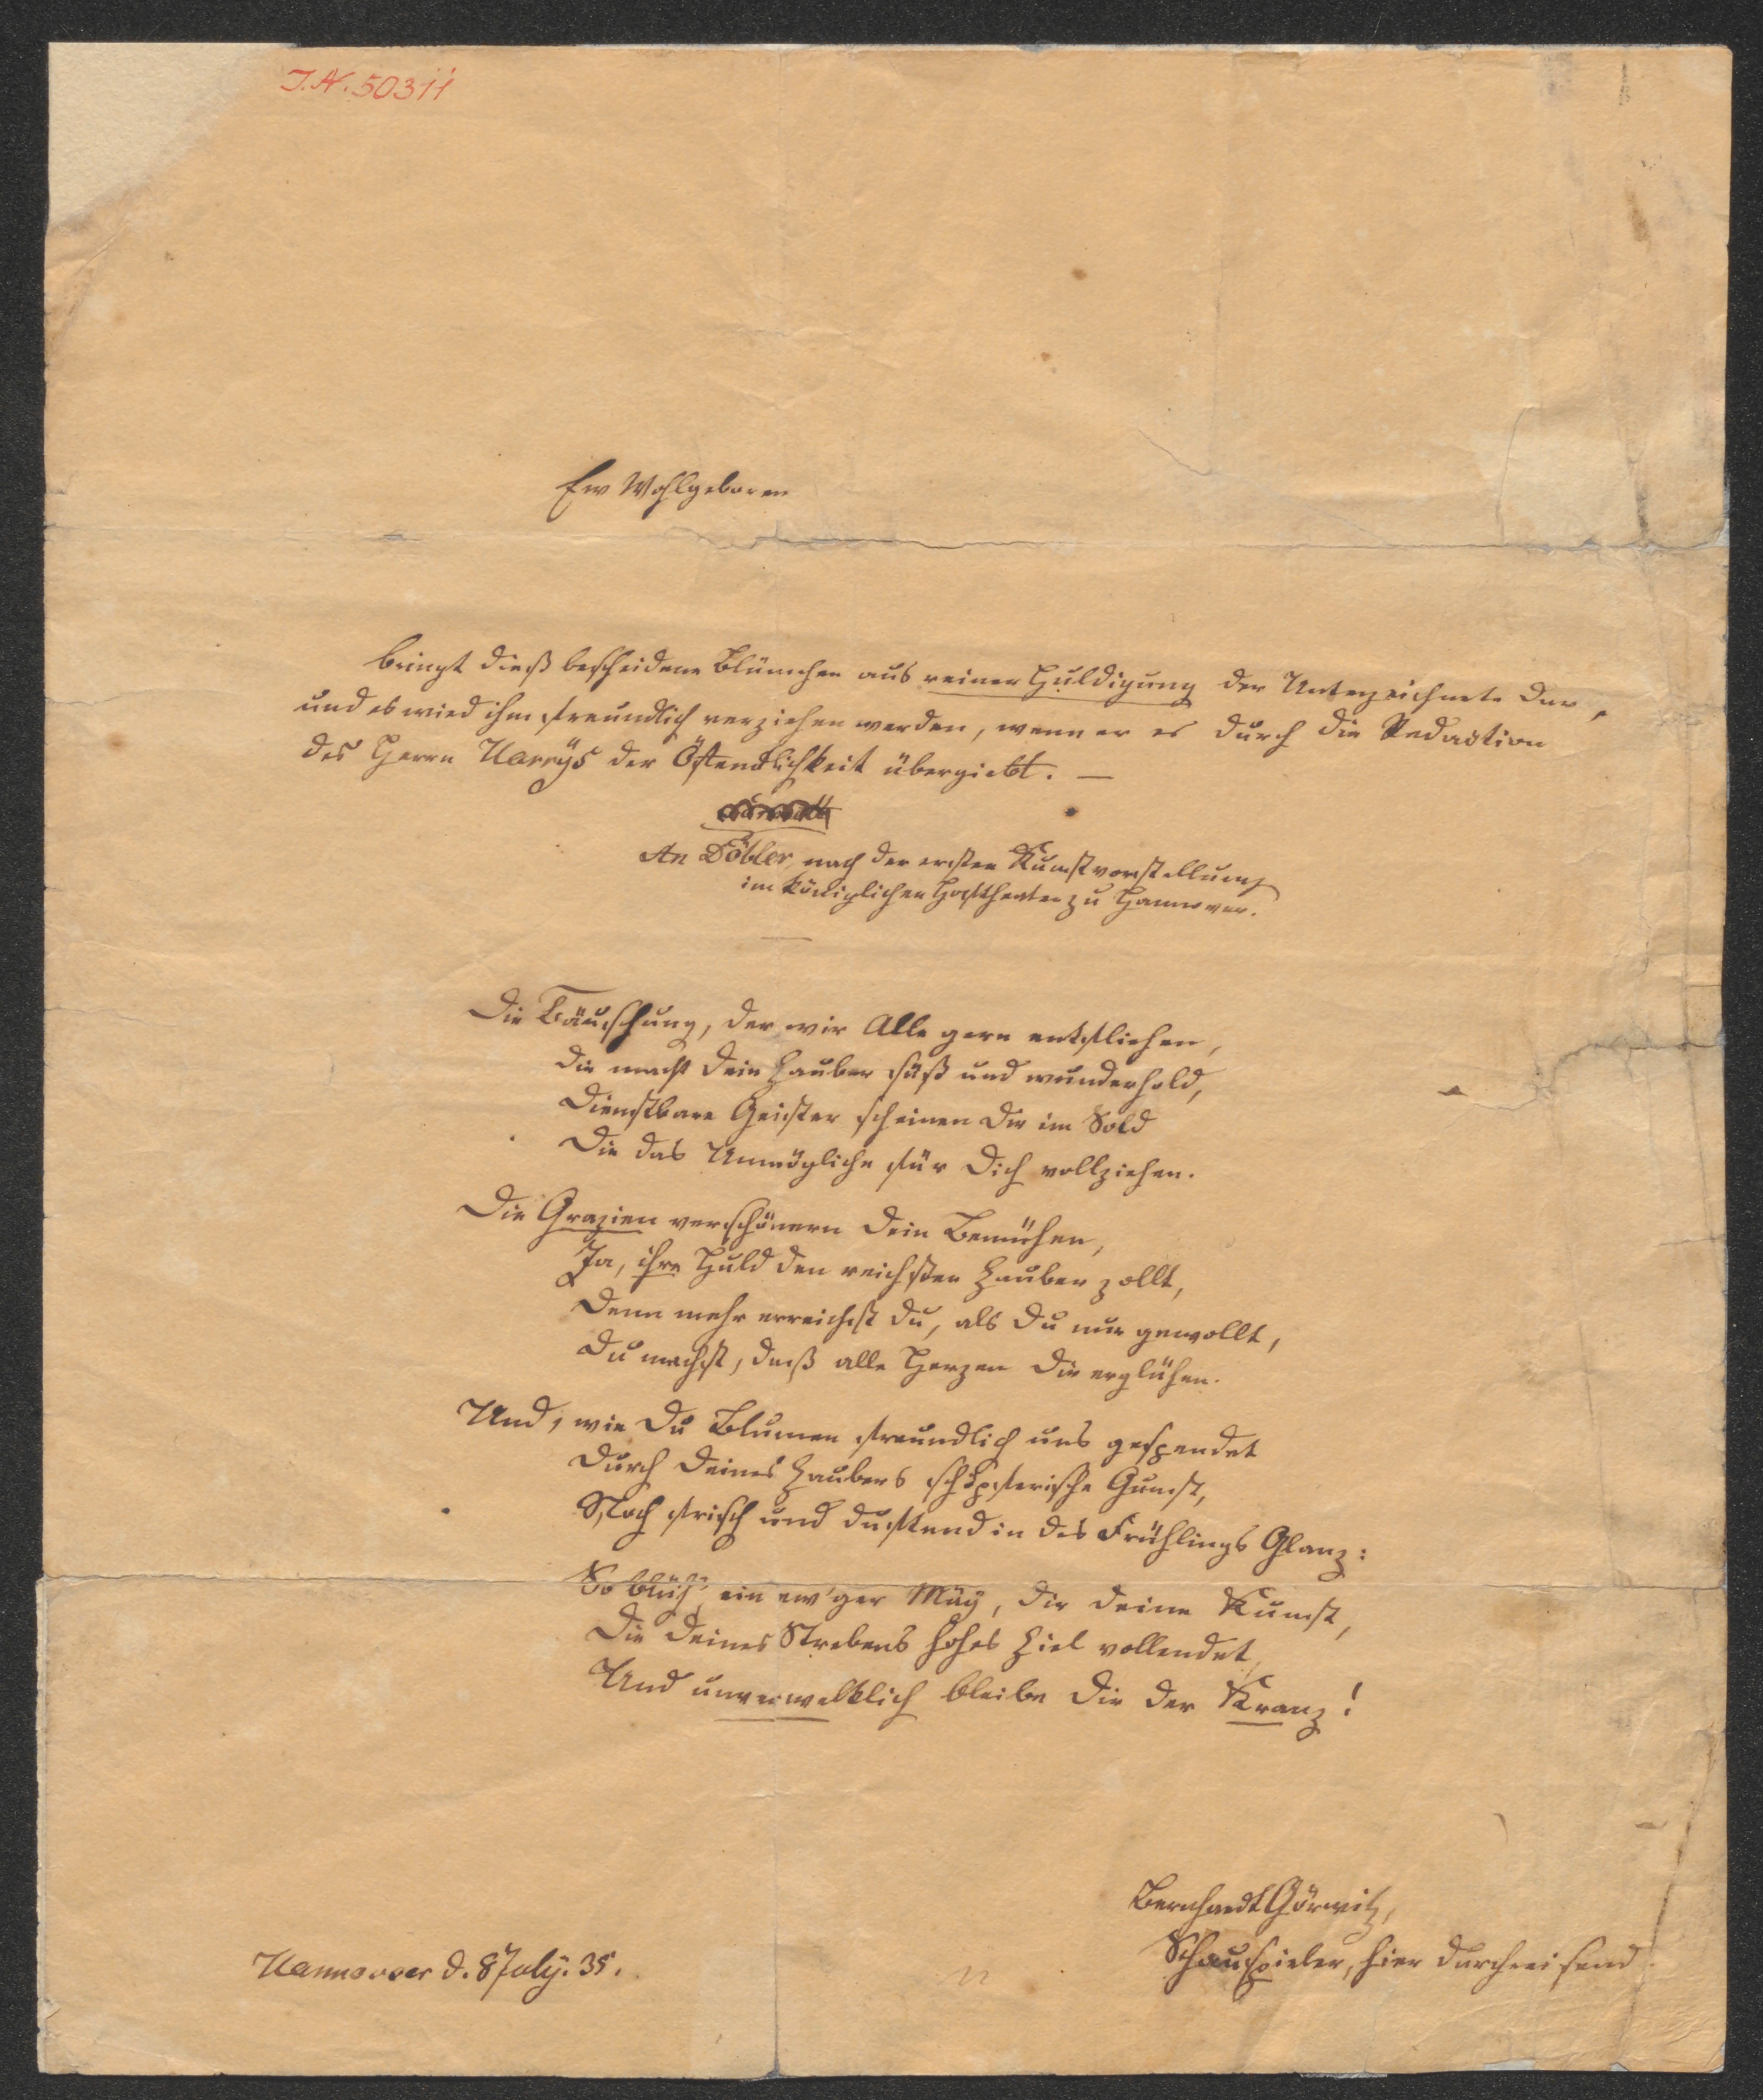 I.N. 50311
Ew Wohlgeboren
bringt dieß bescheidene Blümchen aus reiner Huldigung der Unterzeichnete dar,
und es wird ihm freundlich verziehen werden, wenn er es durch die Redaction
des Herrn Harrys der Öffendlichkeit übergiebt. —
An Döbler nach der ersten Kunstvorstellung
im königlichen Hoftheater zu Hannover.
Die Täuschung, der wir Alle gern entfliehen,
die macht dein Zauber süß und wunderhold,
Dienstbare Geister scheinen dir im Sold
Die das Unmögliche für Dich vollziehen.
Die Grazien verschönern dein Bemühen,
Ja, ihre Huld den reichsten Zauber zollt,
Denn mehr erreichst du, als du nur gewollt,
Du machst, daß alle Herzen dir erglühen.
Und, wie Du Blumen freundlich uns gespendet
Durch deines Zaubers schöpferische Gunst,
Noch frisch und duftend in des Frühlings Glanz:
So blüh', ein ew'ger May, dir deine Kunst,
Die deines Strebens hohes Ziel vollendet,
Und unverwelklich bleibe dir der Kranz!
Bernhardt Görwitz,
Schauspieler, hier durchreisend.
Hannover d. 8 July. 35.